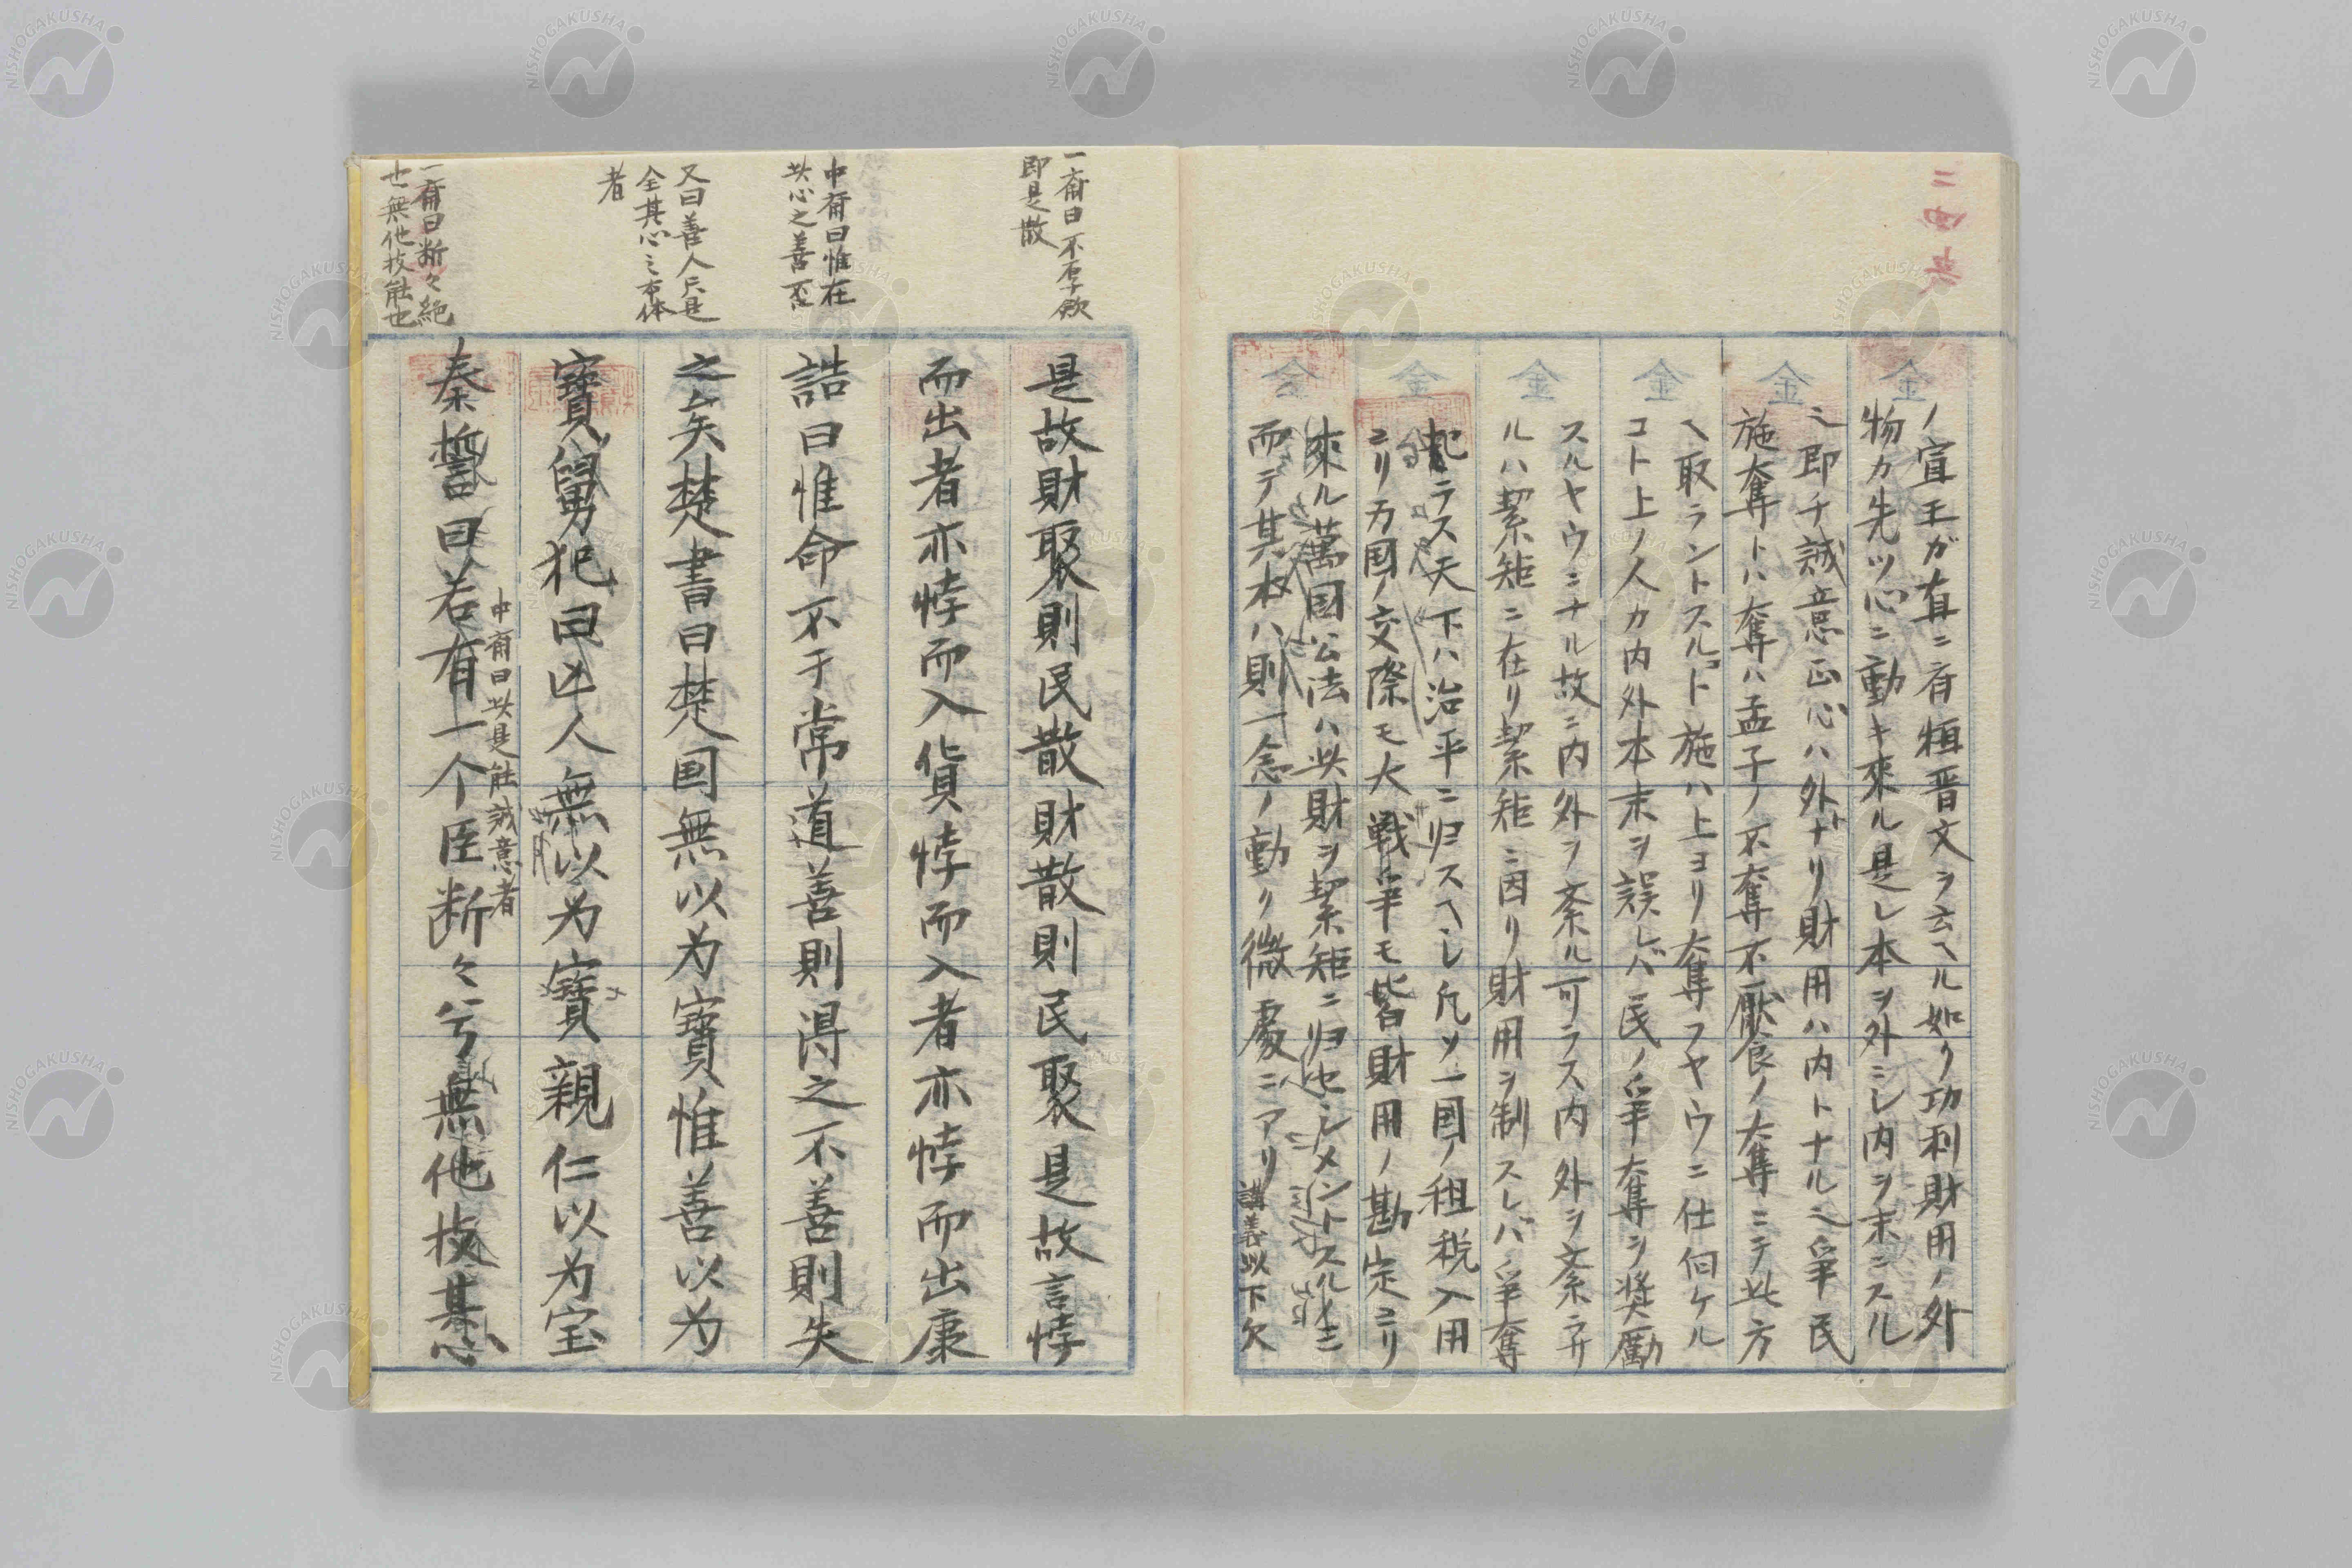 ノ宣王ガ有ニ斉桓晋文ヲ云ヘル如ク功利財用ノ外
物カ先ツ心ニ動キ來ル是レ本ヲ外ニレ内ヲ末ニスル
即チ誠意正心ハ外ナリ財用ハ内トナル爭民
施奪トハ奪ハ孟子ノ不奪不厭ノ奪ニテ此方
ヘ取ラントスルコト施ハ上ヨリ奪フヤウニ仕向ケル
コト上ノ人カ内外本末ヲ誤レバ民ノ爭奪ヲ奨勵
スルヤウニナル故ニ内外ヲ紊ル可ラス内外ヲ紊ラサ
ルハ絜矩ニ在リ絜矩ニ因リ財用ヲ制スレバ爭奪
起ラス天下ハ治平ニ归スヘレ凡ソ一国ノ租税入用
ヨリ万国ノ交際モ大戦爭モ皆財用ノ勘定ヨリ
來ル萬國公法ハ此財ヲ絜矩ニ归セシメントスル
而テ其本ハ則一念ノ動ク微處ニアリ 講義以下欠
一斎曰不存欲
即是散
中斎曰惟在
此心之善否
又曰善人只是
全其心之本体
者
一斎曰断々絶
也無他技能也
是故財聚則民散財散則民聚是故言悖
而出者亦悖而入貨悖而入者亦悖而出康
誥曰惟命不于常道善則得之不善則失
之矣楚書曰楚国無以为寶惟善以为
寶舅犯曰亡人無以为寶親仁以为宝
中斎曰此是能誠意者
秦誓曰若有一个臣断々兮無他技其心
NISHOGAKUSHA